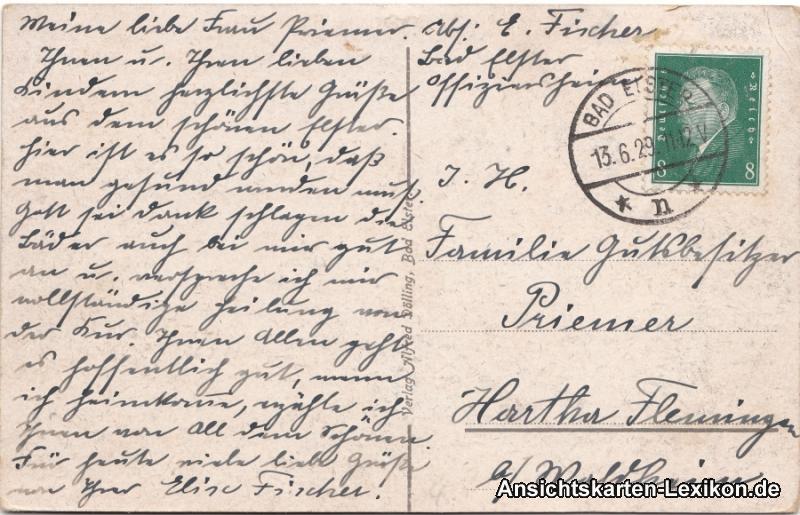 Meine liebe Frau Priemer.
Ihnen u. Ihren lieben
Kindern herzlichste Grüße
aus dem schönen Elster.
Hier ist es so schön, daß
man gesund werden muß.
Gott sei dank schlagen die
Bäder auch bei mir gut
an u. verspreche ich mir
vollständige Heilung von
der Kur. Ihnen Allen geht
es hoffentlich gut, wenn
ich heimkome, erzähle ich
Ihnen von All dem Schönen.
Für heute viele liebe Grüße
von Ihrer Elise Fischer.
Verlag Alfred Dölling, Bad Elster
Abs: E. Fischer
Bad Elster
Offiziersheim
Deutsches Reich
8 8
BAD ELSTER
13.6.29. 11-12 V
* n *
I. H.
Familie Gutsbesitzer
Priemer
Hartha Flemmingen
b/ Waldheim
Ansichtskarten-Lexikon.de